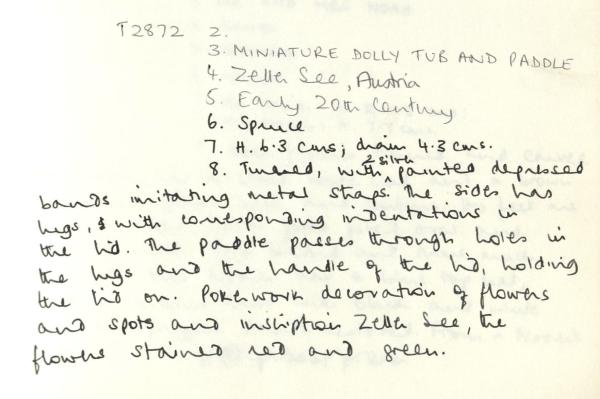 T2872 2.
3. MINIATURE DOLLY TUB AND PADDLE
4. Zeller See, Austria
5. Early 20th Century
6. Spruce
7. H. 6.3 cms; diam 4.3 cms.
8. Turned, with 2 silver painted depressed
bands imitating metal straps. The sides has
lugs, & with corresponding indentations in
the lid. The paddle passes through holes in
the lugs and the handle of the lid, holding
the lid on. Pokerwork decoration of flowers
and spots and inscription Zeller See, the
flowers stained red and green.